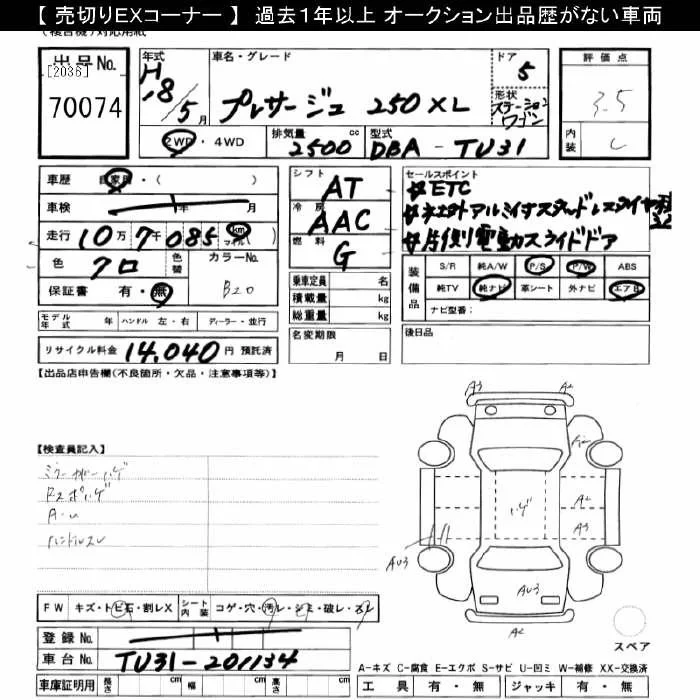 【 売切りEXコーナー 】 過去1年以上 オークション出品歴がない車両
出品No.
[2036]
70074
年式
H18/5月
車名・グレード
プレサージュ 250XL
ドア
5
形状
ステーションワゴン
2WD・4WD
排気量 2500 cc
型式 DBA-TU31
評価点
3.5
内装
C
車歴 自家用・( )
車検 年 月
走行 10万7千085 km マイル
色 クロ
色替
カラーNo. B20
保証書 有・無
モデル年式 年 ハンドル 左・右 ディーラー・並行
リサイクル料金 14,040円 預託済
シフト AT
冷房 AAC
燃料 G
乗車定員 名
積載量 kg
総重量 kg
名変期限
月 日
セールスポイント
#ETC
#片側電動スライドドア
装備品
S/R 純A/W P/S P/W ABS
純TV 純ナビ 革シート 外ナビ エアB
ナビ型番:
後日品
【出品店申告欄(不良箇所・欠品・注意事項等)】
【検査員記入】
A3 A2
A2
A2
A3
ハゲ
AU3
AU3
A2
スペア
FW キズ・トビ石・割レX
シート内装 コゲ・穴・汚レ・シミ・破レ・スレ
登録No.
車台No. TU31-201134
A-キズ C-腐食 E-エクボ S-サビ U-凹ミ W-補修 XX-交換済
車庫証明用 長さ cm 幅 cm 高さ cm
工具 有・無 ジャッキ 有・無